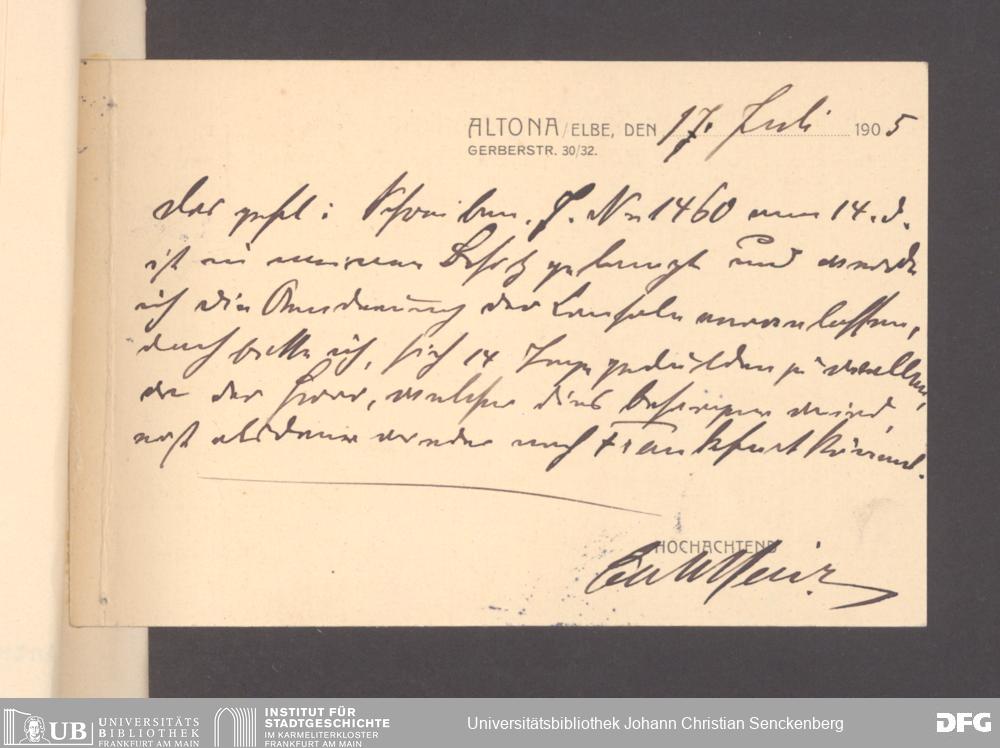 ALTONA/ELBE, DEN 17. Juli 1905
GERBERSTR. 30/32.
Das gefl: Schreiben J. No 1460 vom 14. d.
ist in meinen Besitz gelangt und werde
ich die Änderung der Konsole veranlassen,
doch bitte ich, sich 14 Tage gedulden zu wollen,
da der Herr, welcher dies besorgen wird,
erst alsdann wieder nach Frankfurt kommt.
HOCHACHTEND
UB UNIVERSITÄTS
BIBLIOTHEK
FRANKFURT AM MAIN
INSTITUT FÜR
STADTGESCHICHTE
IM KARMELITERKLOSTER
FRANKFURT AM MAIN
Universitätsbibliothek Johann Christian Senckenberg
DFG